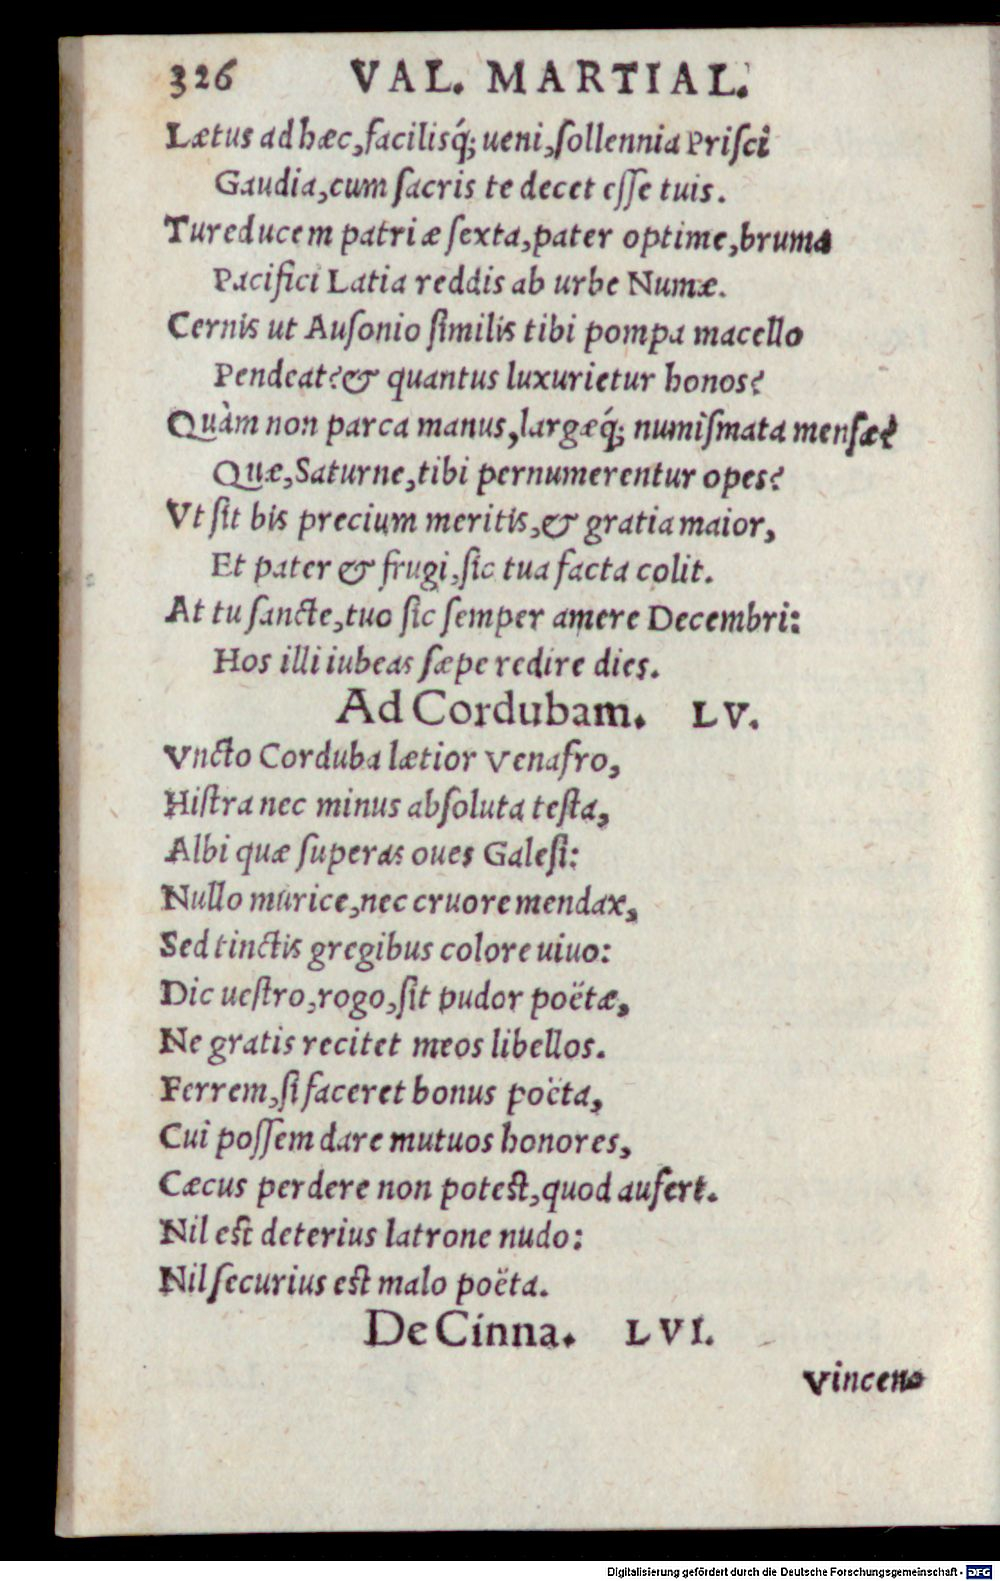 326 VAL. MARTIAL.
Lætus ad hæc, facilisq́; ueni, ſollennia Priſci
Gaudia, cum ſacris te decet eſſe tuis.
Tu reducem patriæ ſexta, pater optime, bruma
Pacifici Latia reddis ab urbe Numæ.
Cernis ut Auſonio ſimilis tibi pompa macello
Pendeat? & quantus luxurietur honos?
Quàm non parca manus, largæq́; numiſmata menſæ?
Quæ, Saturne, tibi pernumerentur opes?
Vt ſit bis precium meritis, & gratia maior,
Et pater & frugi, ſic tua facta colit.
At tu ſancte, tuo ſic ſemper amere Decembri:
Hos illi iubeas ſæpe redire dies.
Ad Cordubam. LV.
Vncto Corduba lætior Venafro,
Hiſtra nec minus abſoluta teſta,
Albi quæ ſuperas oues Galeſi:
Nullo murice, nec cruore mendax,
Sed tinctis gregibus colore uiuo:
Dic ueſtro, rogo, ſit pudor poëtæ,
Ne gratis recitet meos libellos.
Ferrem, ſi faceret bonus poëta,
Cui poſſem dare mutuos honores,
Cæcus perdere non poteſt, quod aufert.
Nil eſt deterius latrone nudo:
Nil ſecurius eſt malo poëta.
De Cinna. LVI.
Vincen-
Digitalisierung gefördert durch die Deutsche Forschungsgemeinschaft - DFG